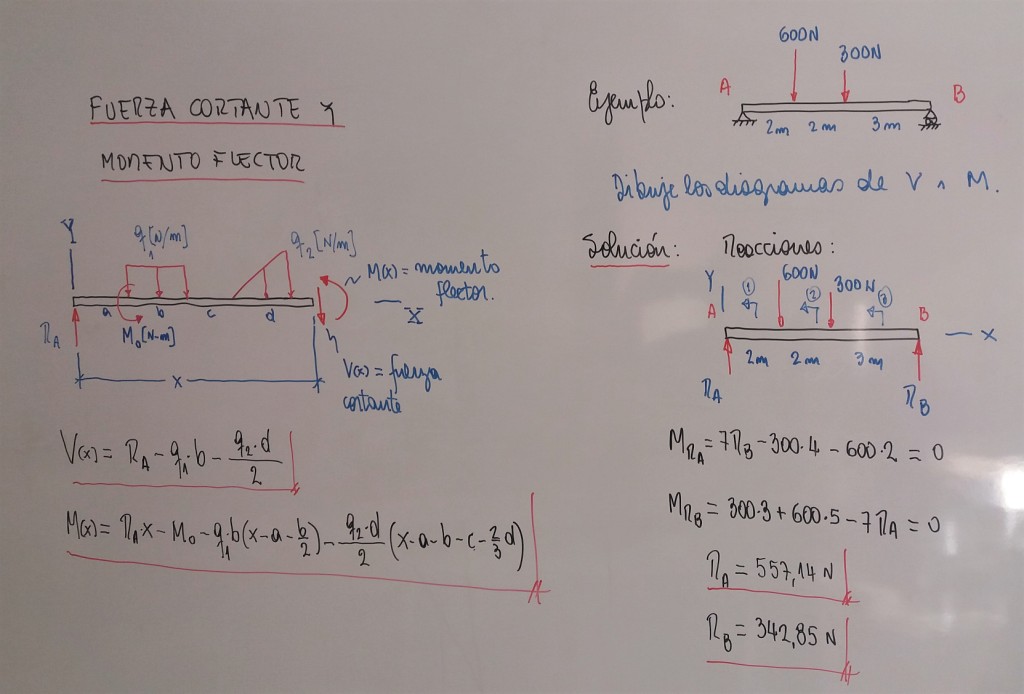 FUERZA CORTANTE Y
MOMENTO FLECTOR
Y
q₁[N/m]
q₂[N/m]
M(x) = momento
flector.
X
a b c d
R_A
M₀[N-m]
x
V(x) = fuerza
cortante
V(x) = R_A - q₁·b - q₂·d/2
M(x) = R_A·x - M₀ - q₁·b(x-a-b/2) - q₂·d/2 (x-a-b-c-2/3 d)
Ejemplo:
600N
300N
A
B
2m 2m 3m
Dibuje los diagramas de V ∧ M.
Solución: Reacciones:
Y
600N
300N
① ② ③
A
B
x
2m 2m 3m
R_A
R_B
M_{R_A} = 7R_B - 300·4 - 600·2 = 0
M_{R_B} = 300·3 + 600·5 - 7R_A = 0
R_A = 557,14 N
R_B = 342,85 N